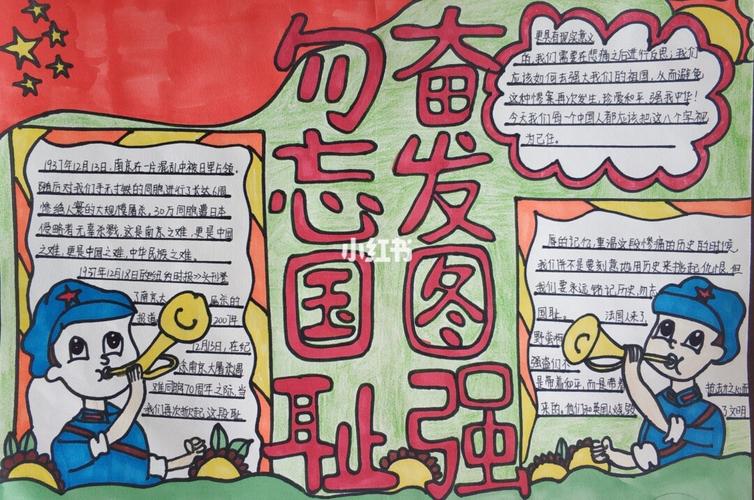 勿忘国耻
奋发图强
小红书
1937年12月13日,南京在一片混乱中被日军占领.
随后对我们手无寸铁的同胞进行了长达6周
惨绝人寰的大规模屠杀.30万同胞遭日本
侵略者无辜杀戮,这是南京之难,更是中国
之难,更是中国之难,中华民族之难.
1937年12月18日
时报>>头刊登
了南京大
报道
200
12月13日,在纪
念南京大屠杀遇
难同胞70周年之际,当
我们再次掀起这段耻
更具有现实意义
的.我们需要在悲痛之后进行反思:我们
应该如何去强大我们的祖国,从而避免
这种惨案再次发生.珍爱和平,强我中华!
今天我们每一个中国人都应该把这八个字视
为己任.
辱的记忆,重温这段惨痛的历史的时候
我们并不是要刻意地用历史来挑起仇恨.但
我们要永远铭记历史,勿忘
国耻.
法国人来了
野蛮
强盗们不
是带着和平,而是带着
来的.他们和英国人烧毁
了文明